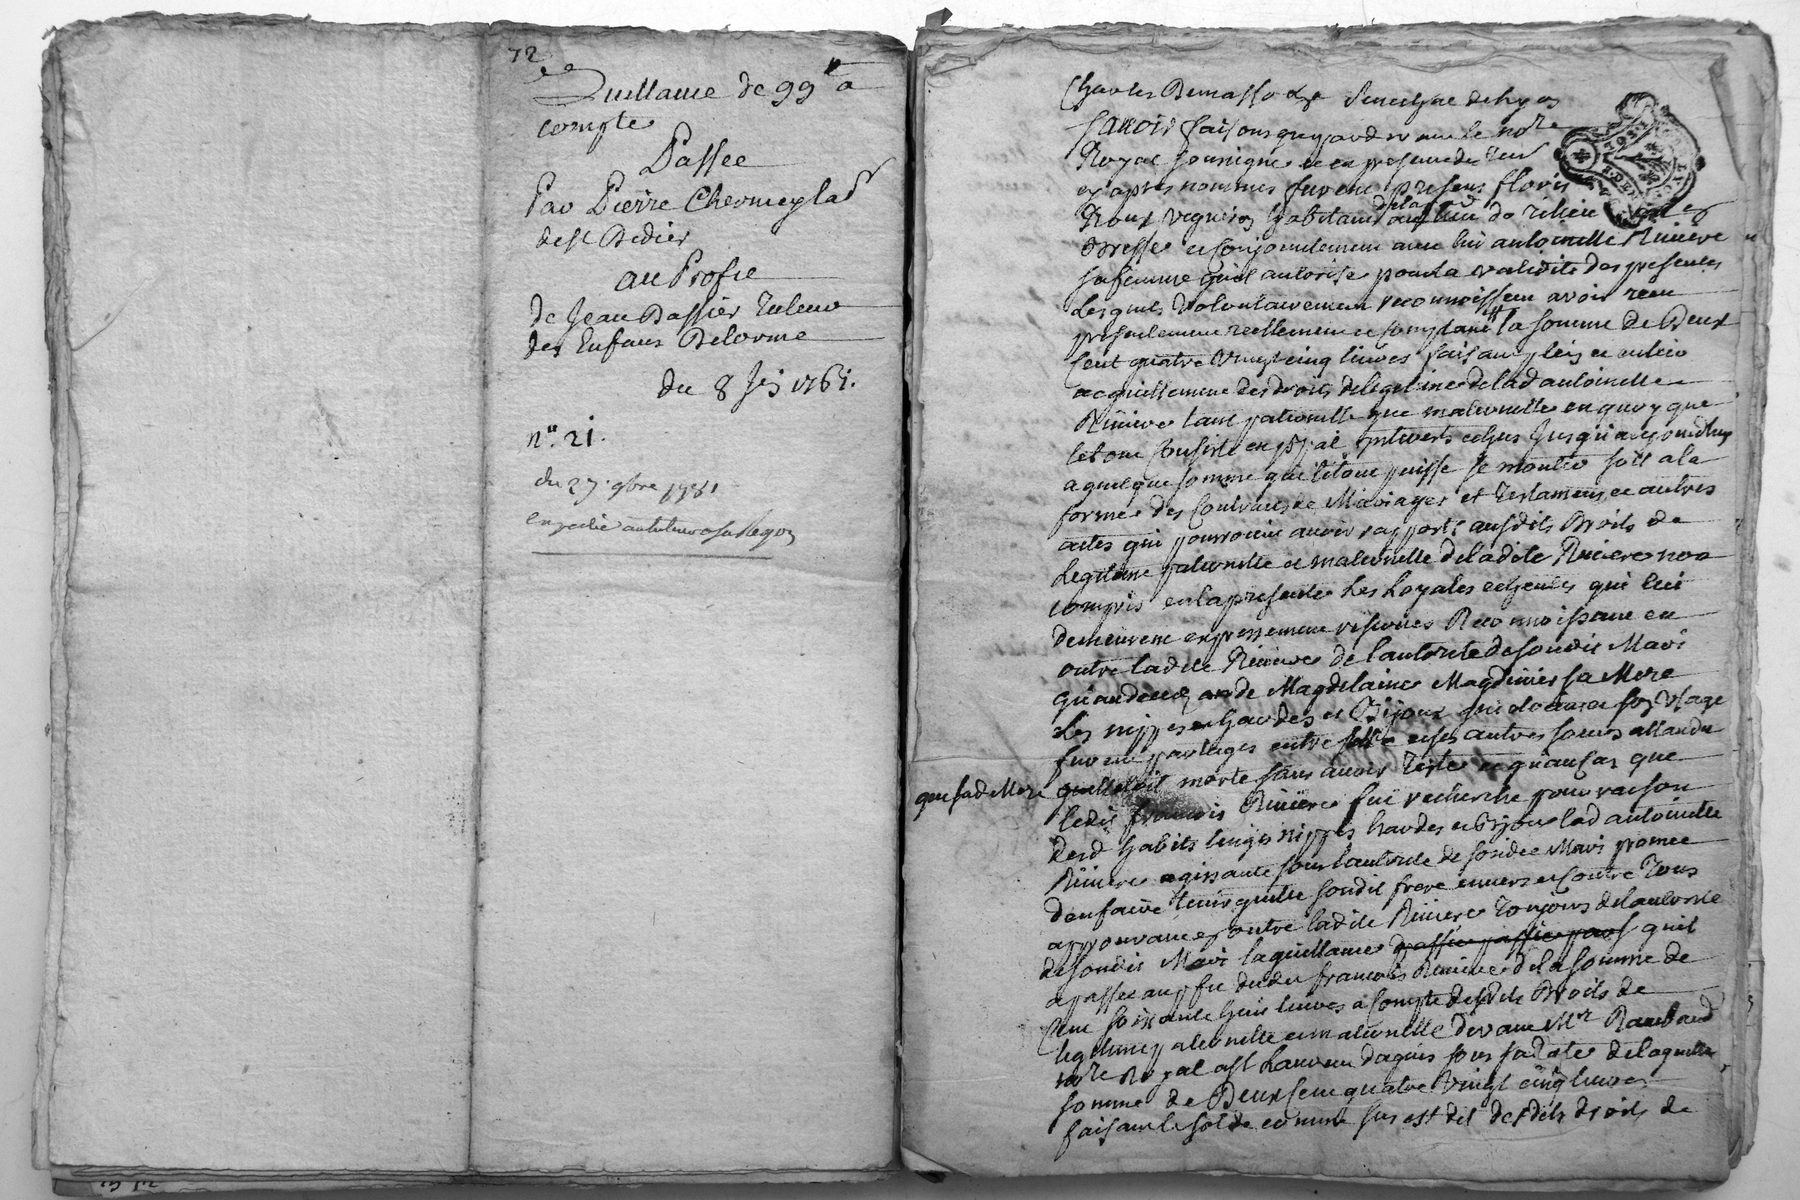 72
Quittance de 99 tt a
compte
Passée
Par Pierre Chermeyla
de st Didier
au Profit
de Jean Dassier Tuteur
des Enfans Delorme
du 8
n° 21.
du 27 9bre 1781
expédié au tuteur
Charles Demasso Senechal de Lyon
Savoir faisons que pardevant le no.re
Royal soussigné et en presence des tem
cy apres nommés furent presens
Roux Vigneron habitant de
et conjointement avec lui antoinette Riviere
sa femme quil autorise pour la validité des presentes
Lesquels Volontairement reconnoissent avoir recu
presentement reellement et comptant la somme de Deux
Cent quatre Vingt cinq livres faisant plein et entier
acquittement des droits de legitime de lad antoinette
Riviere tant paternelle que maternelle en quoy que
le tout Consiste en ppal interets echus Jusqu'aujourdhuy
a quelque somme que le tout puisse se monter soit a la
forme des Contrats de Mariages et Testamens et autres
actes qui pourroient avoir rapport ausdits Droits de
Legitime paternelle et maternelle de ladite Riviere non
compris en la presente Les Loyales echeutes qui lui
demeurent expressement reservées Reconnoissant en
outre ladite Riviere de l'autorité de sondit Mari
qu'au deces de Magdelaine Magdinier sa Mere
Les nippes hardes et Bijoux qui etoient a son Usage
furent partagés entre elle et ses autres soeurs attandu
que sad Mere
quelle etoit morte sans avoir Testé et qu'au cas que
ledit françois Riviere fut recherché pour raison
desd habits linges nippes hardes et Bijoux lad antoinette
Riviere agissante sous l'autorité de sondit Mari promet
d'en faire tenir quitte sondit frere envers et Contre Tous
approuvant en outre ladite Riviere Toujours de l'autorité
de sondit Mari la quittance quil
a passée au pfit dudit francois Riviere de la somme de
Cent soixante huit livres a Compte desdits Droits de
legitime paternelle et maternelle devant Mr Rambaud
no.re Royal a st Laurent dagnis sous sa date de laquelle
somme de Deux cent quatre Vingt cinq livres
faisant le solde comme sus est dit desdits droits de